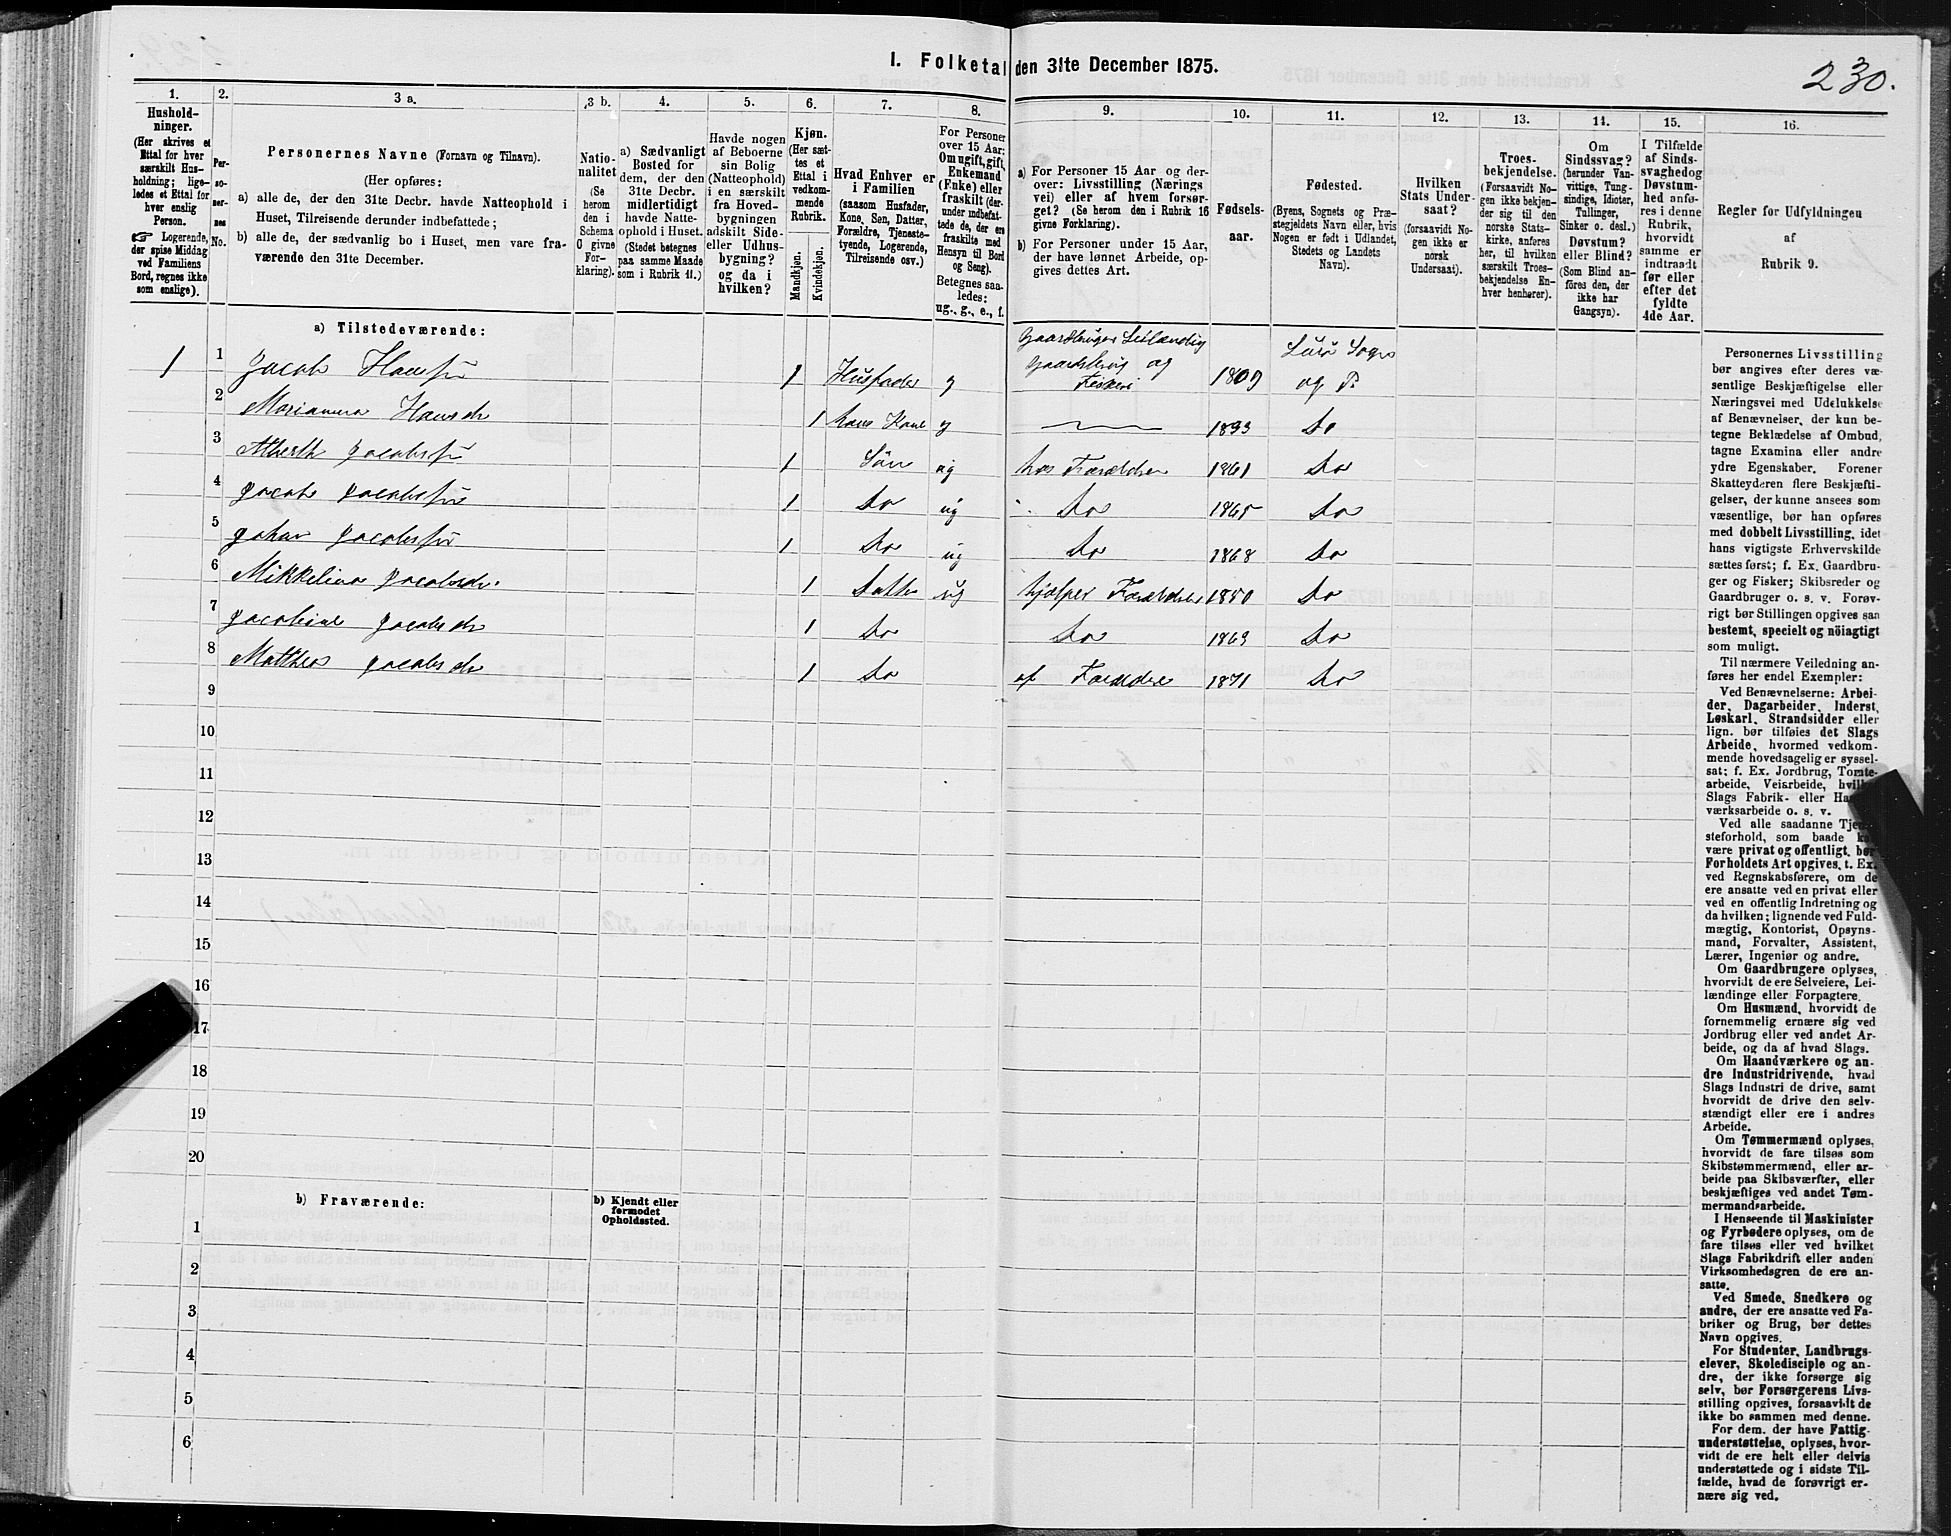 230.
I. Folketal den 31te December 1875.
1.
Hushold-
ninger.
(Her skrives et
Ettal for hver
særskilt Hus-
holdning; lige-
ledes et Ettal for
hver enslig
Person.
☞ Logerende,
der spise Middag
ved Familiens
Bord, regnes ikke
som enslige).
2.
Per-
so-
ner-
nes
No.
3 a.
Personernes Navne (Fornavn og Tilnavn).
(Her opføres:
a) alle de, der den 31te Decbr. havde Natteophold i
Huset, Tilreisende derunder indbefattede;
b) alle de, der sædvanlig bo i Huset, men vare fra-
værende den 31te December.
3 b.
Natio-
nalitet
(Se
herom
den i
Schema
O givne
For-
klaring).
4.
a) Sædvanligt
Bosted for
dem, der den
31te Decbr.
midlertidigt
havde Natte-
ophold i Huset.
(Stedet betegnes
paa samme Maade
som i Rubrik 11.)
5.
Havde nogen
af Beboerne
sin Bolig
(Natteophold)
i en særskilt
fra Hoved-
bygningen
adskilt Side-
eller Udhus-
bygning?
og da i
hvilken?
6.
Kjøn.
(Her sæt-
tes et
Ettal i
vedkom-
mende
Rubrik.
Mandkjøn.
Kvindekjøn.
7.
Hvad Enhver er
i Familien
(saasom Husfader,
Kone, Søn, Datter,
Forældre, Tjeneste-
tyende, Logerende,
Tilreisende osv.)
8.
For Personer
over 15 Aar:
Om ugift, gift,
Enkemand
(Enke) eller
fraskilt (der-
under indbefat-
tede de, der ere
fraskilte med
Hensyn til Bord
og Seng).
Betegnes saa-
ledes:
ug., g., e., f.
9.
a) For Personer 15 Aar og der-
over: Livsstilling (Nærings
vei) eller af hvem forsør-
get? (Se herom den i Rubrik 16
givne Forklaring).
b) For Personer under 15 Aar,
der have lønnet Arbeide, op-
gives dettes Art.
10.
Fødsels-
aar.
11.
Fødested.
(Byens, Sognets og Præ-
stegjeldets Navn eller, hvis
Nogen er født i Udlandet,
Stedets og Landets
Navn).
12.
Hvilken
Stats Under-
saat?
(forsaavidt No-
gen ikke er
norsk
Undersaat).
13.
Troes-
bekjendelse.
(Forsaavidt No-
gen ikke bekjen-
der sig til den
norske Stats-
kirke, anføres
her, til hvilken
særskilt Troes-
bekjendelse En-
hver henhører).
14.
Om
Sindssvag?
(herunder Van-
vittige, Tung-
sindige, Idioter,
Tullinger,
Sinker o. desl.)
Døvstum?
eller Blind?
(Som Blind an-
føres den, der
ikke har
Gangsyn).
15.
I Tilfælde
af Sinds-
svaghedog
Døvstum-
hed anfø-
res i denne
Rubrik,
hvorvidt
samme er
indtraadt
før eller
efter det
fyldte
4de Aar.
16.
Regler for Udfyldningen
af
Rubrik 9.
a) Tilstedeværende:
1 1 Jacob Hanssøn 1 Husfader g Gaardbruger Leilænding Gaardsbrug og Fiskeri 1809 Lurø Sogn og P.
2 Marianna Hansdr 1 hans Kone g 1893 Do
3 Alberth Jacobssøn 1 Søn ug hos Forældre 1861 Do
4 Jacob Jacobssøn 1 Do ug Do 1865 Do
5 Johan Jacobssøn 1 Do ug Do 1868 Do
6 Mikkelina Jacobsdr. 1 Datter ug hjælper Forældre 1850 Do
7 Jacobine Jacobsdr 1 Do Do 1863 Do
8 Mathea Jacobsdr 1 Do af Forældre 1871 Do
9
10
11
12
13
14
15
16
17
18
19
20
b) Fraværende:
b) Kjendt eller
formodet
Opholdssted.
1
2
3
4
5
6
Personernes Livsstilling
bør angives efter deres væ-
sentlige Beskjæftigelse eller
Næringsvei med Udelukkelse
af Benævnelser, der kun be-
tegne Beklædelse af Ombud,
tagne Examina eller andre
ydre Egenskaber. Forener
Skatteyderen flere Beskjæfti-
gelser, der kunne ansees som
væsentlige, bør han opføres
med dobbelt Livsstilling, idet
hans vigtigste Erhvervskilde
sættes først; f. Ex. Gaardbru-
ger og Fisker; Skibsreder og
Gaardbruger o. s. v. Forøv-
rigt bør Stillingen opgives saa
bestemt, specielt og nöiagtigt
som muligt.
Til nærmere Veiledning an-
føres her endel Exempler:
Ved Benævnelserne: Arbei-
der, Dagarbeider, Inderst,
Løskarl, Strandsidder eller
lign. bør tilføies det Slags
Arbeide, hvormed vedkom-
mende hovedsagelig er syssel-
sat; f. Ex. Jordbrug, Tomte-
arbeide, Veiarbeide, hvilket
Slags Fabrik- eller Haand-
værksarbeide o. s. v.
Ved alle saadanne Tjene-
steforhold, som baade kan
være privat og offentligt, bør
Forholdets Art opgives, t. Ex.
ved Regnskabsførere, om de
ere ansatte ved en privat eller
ved en offentlig Indretning og
da hvilken; lignende ved Fuld-
mægtig, Kontorist, Opsyns-
mand, Forvalter, Assistent,
Lærer, Ingeniør og andre.
Om Gaardbrugere oplyses,
hvorvidt de ere Selveiere, Lei-
lændinge eller Forpagtere.
Om Husmænd, hvorvidt de
fornemmelig ernære sig ved
Jordbrug eller ved andet Ar-
beide, og da af hvad Slags.
Om Haandværkere og an-
dre Industridrivende, hvad
Slags Industri de drive, samt
hvorvidt de drive den selv-
stændigt eller ere i andres
Arbeide.
Om Tømmermænd oplyses,
hvorvidt de fare tilsøs som
Skibstømmermænd, eller ar-
beide paa Skibsværfter, eller
beskjæftiges ved andet Tøm-
mermandsarbeide.
I Henseende til Maskinister
og Fyrbødere oplyses, om de
fare tilsøs eller ved hvilket
Slags Fabrikdrift eller anden
Virksomhedsgren de ere an-
satte.
Ved Smede, Snedkere og
andre, der ere ansatte ved Fa-
briker og Brug, bør dettes
Navn opgives.
For Studenter, Landbrugs-
elever, Skoledisciple og an-
dre, der ikke forsørge sig
selv, bør Forsørgerens Livs-
stilling opgives, forsaavidt de
ikke bo sammen med denne.
For dem, der have Fattig-
understøttelse, oplyses, hvor-
vidt de ere helt eller delvis
understøttede og i sidste Til-
fælde, hvad de forøvrigt er-
nære sig ved.